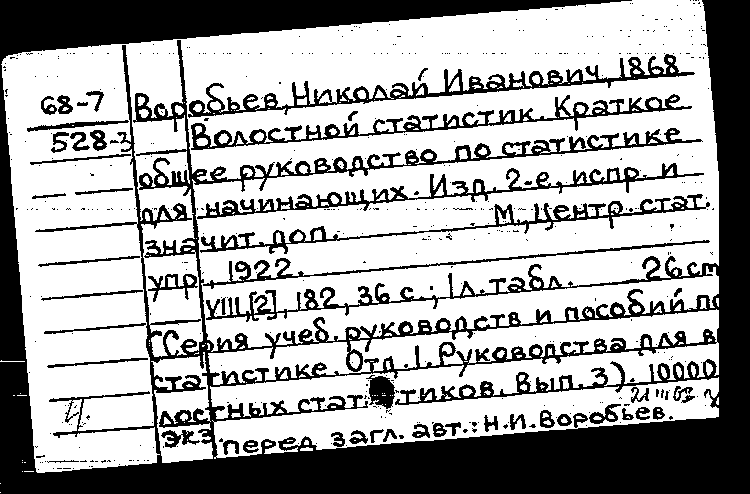 68-7
528-3
Воробьев, Николай Иванович, 1868
Волостной статистик. Краткое
общее руководство по статистике
для начинающих. Изд. 2-е, испр. и
значит. доп. М., Центр. стат.
упр., 1922.
VIII, [2], 182, 36 с.; 1 л. табл. 26 cm
(Серия учеб. руководств и пособий по
статистике. Отд. 1. Руководства для в
лостных стат тиков. Вып. 3). 10000
экз.
перед загл. авт.: Н.И. Воробьев.